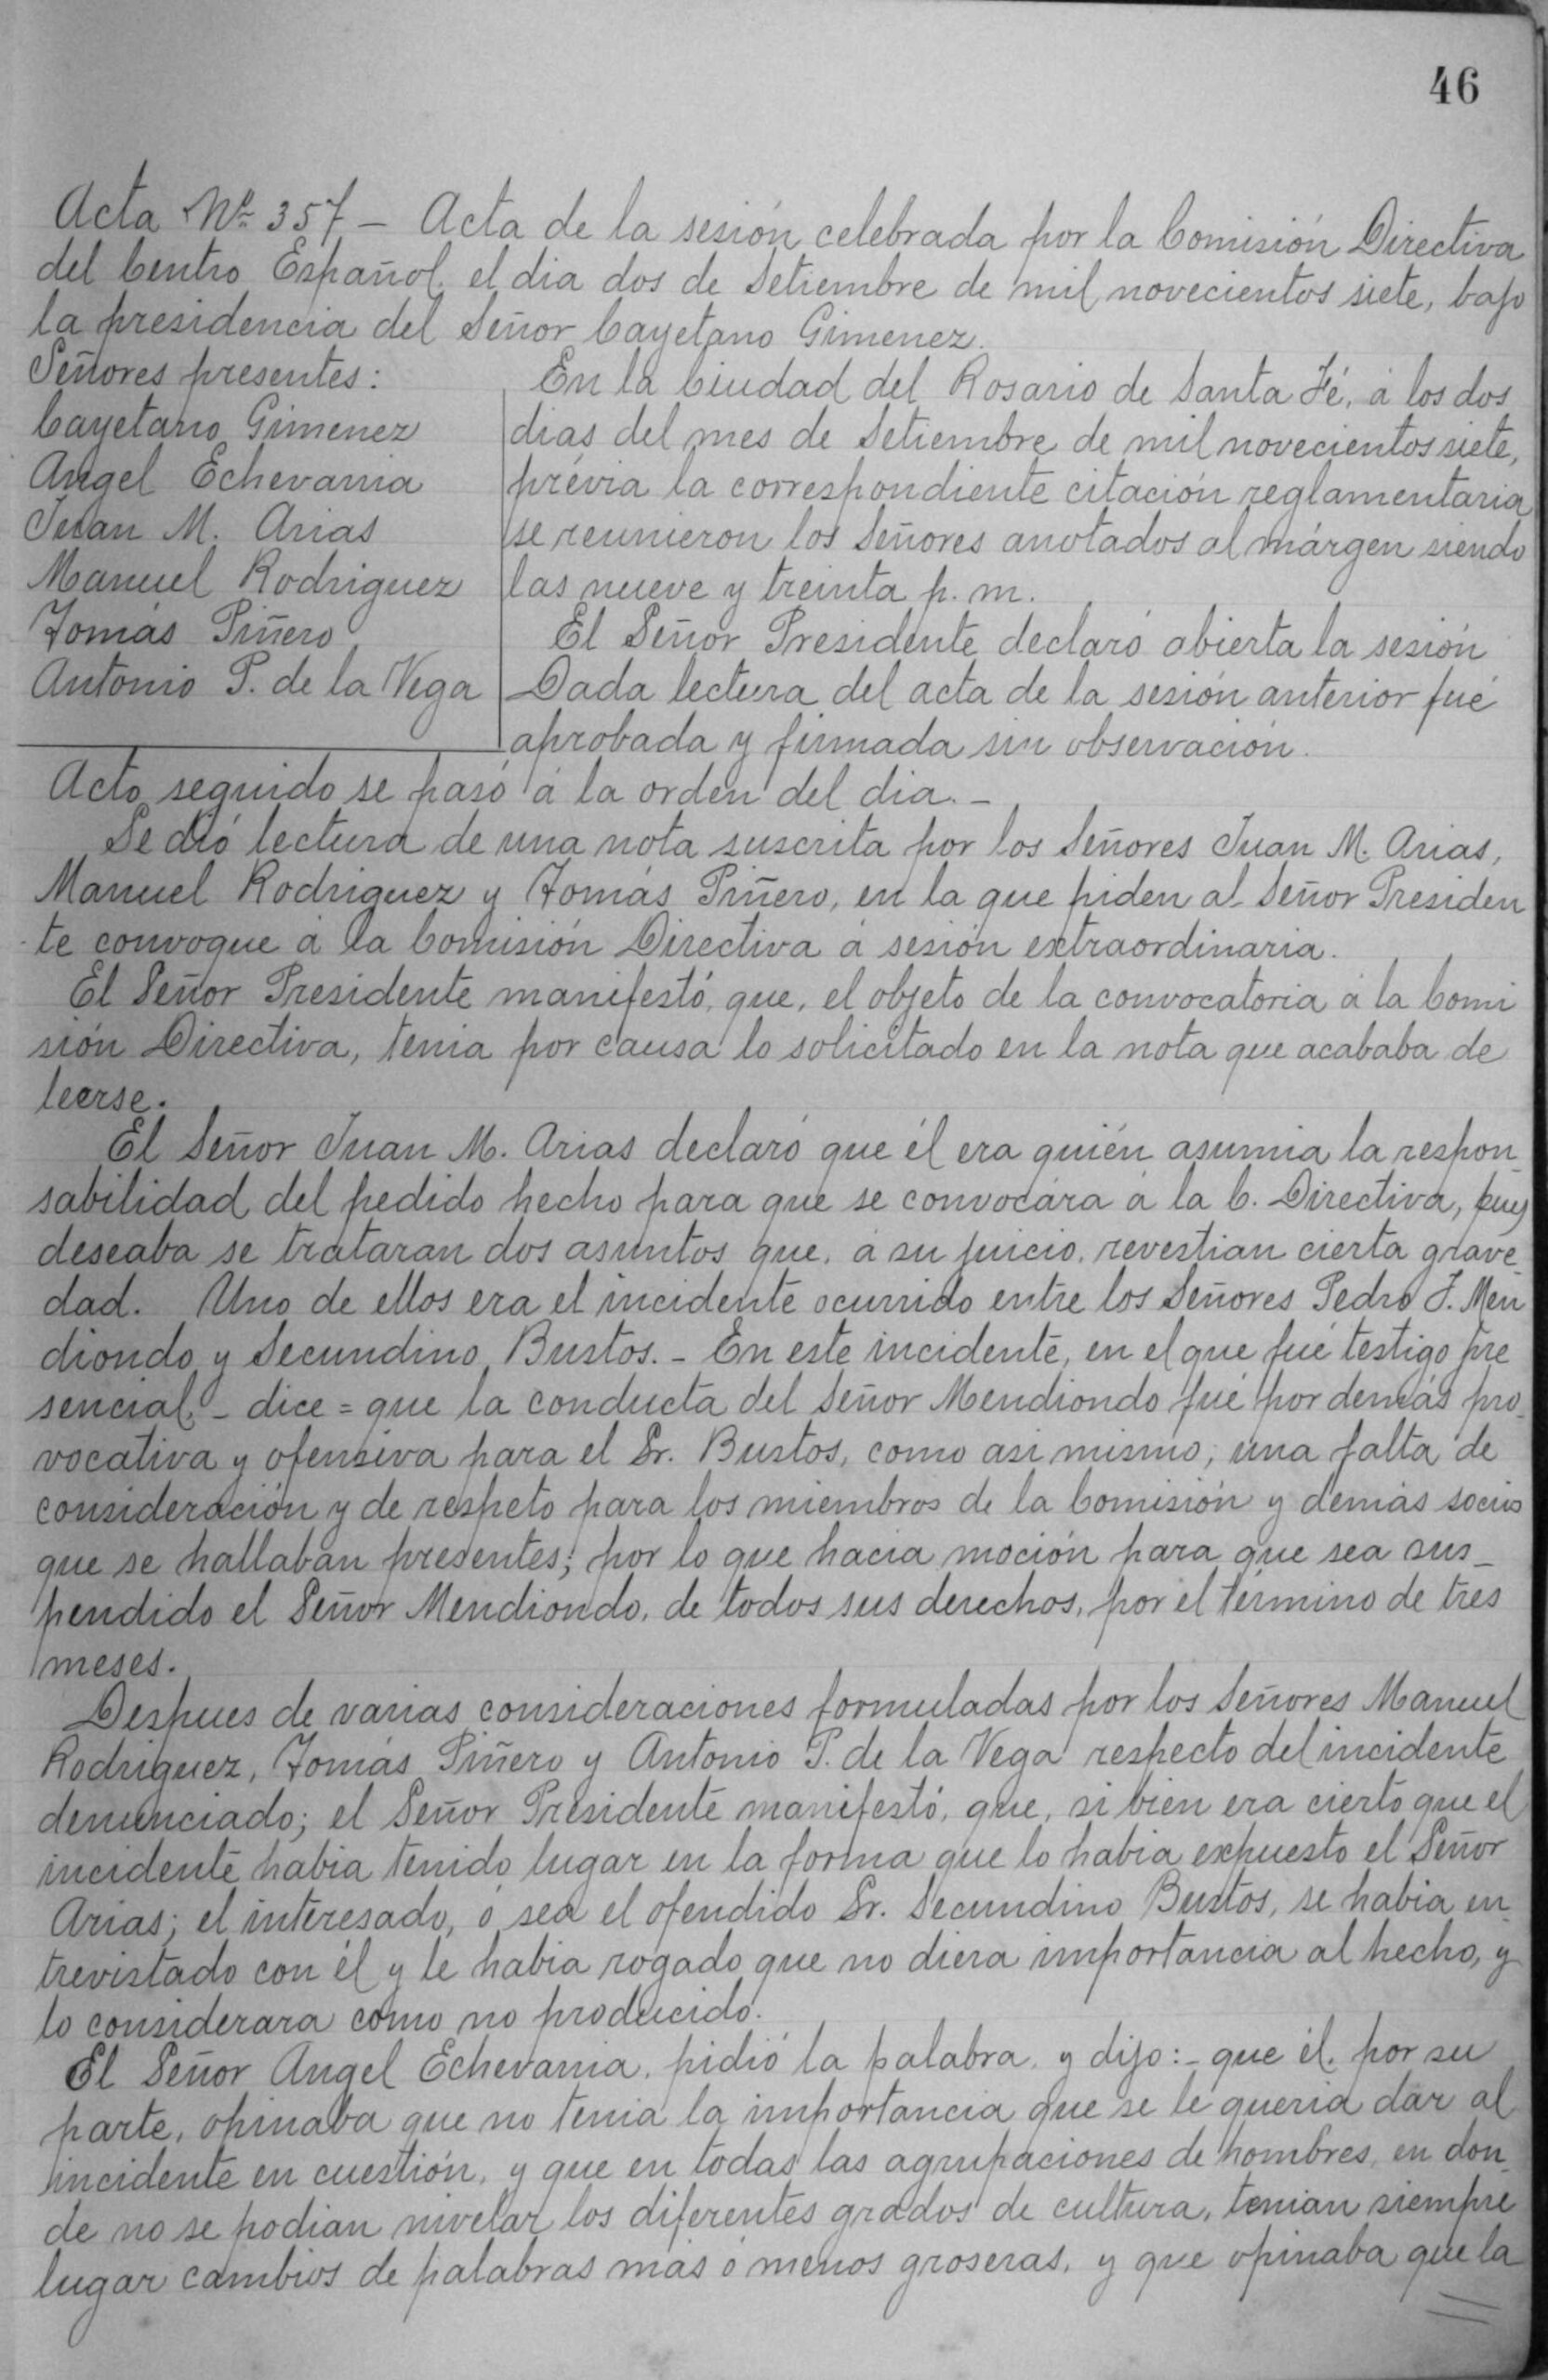 46
Acta Nº 357 – Acta de la sesión celebrada por la Comisión Directiva
del Centro Español, el dia dos de Setiembre de mil novecientos siete, bajo
la presidencia del Señor Cayetano Gimenez.
Señores presentes:
Cayetano Gimenez
Angel Echevarria
Juan M. Arias
Manuel Rodriguez
Tomás Piñero
Antonio P. de la Vega
En la Ciudad del Rosario de Santa Fé, á los dos
dias del mes de Setiembre de mil novecientos siete,
prévia la correspondiente citación reglamentaria
se reunieron los Señores anotados al márgen siendo
las nueve y treinta p. m.
El Señor Presidente declaró abierta la sesión
Dada lectura del acta de la sesión anterior fué
aprobada y firmada sin observación.
Acto seguido se pasó á la orden del dia. –
Se dió lectura de una nota suscrita por los Señores Juan M. Arias,
Manuel Rodriguez y Tomás Piñero, en la que piden al Señor Presiden
te convoque á la Comisión Directiva á sesión extraordinaria.
El Señor Presidente manifestó, que, el objeto de la convocatoria á la Comi
sión Directiva, tenia por causa lo solicitado en la nota que acababa de
leerse.
El Señor Juan M. Arias declaró que él era quién asumia la respon_
sabilidad del pedido hecho para que se convocára á la C. Directiva, pues
deseaba se trataran dos asuntos que, á su juicio, revestian cierta grave_
dad. Uno de ellos era el incidente ocurrido entre los Señores Pedro J. Men
diondo y Secundino Bustos. – En este incidente, en el que fué testigo pre
sencial, – dice = que la conducta del Señor Mendiondo fué por demás pro_
vocativa y ofensiva para el Sr. Bustos, como asi mismo, una falta de
consideración y de respeto para los miembros de la Comisión y demás socios
que se hallaban presentes; por lo que hacia moción para que sea sus_
pendido el Señor Mendiondo, de todos sus derechos, por el término de tres
meses.
Despues de varias consideraciones formuladas por los Señores Manuel
Rodriguez, Tomás Piñero y Antonio P. de la Vega respecto del incidente
denunciado; el Señor Presidente manifestó, que, si bien era cierto que el
incidente habia tenido lugar en la forma que lo habia expuesto el Señor
Arias; el interesado, ó sea el ofendido Sr. Secundino Bustos, se habia en_
trevistado con él y le habia rogado que no diera importancia al hecho, y
lo considerara como no producido.
El Señor Angel Echevarria, pidió la palabra, y dijo: – que él, por su
parte, opinaba que no tenia la importancia que se le queria dar al
incidente en cuestión, y que en todas las agrupaciones de hombres, en don_
de no se podian nivelar los diferentes grados de cultura, tenian siempre
lugar cambios de palabras más ó menos groseras, y que opinaba que la